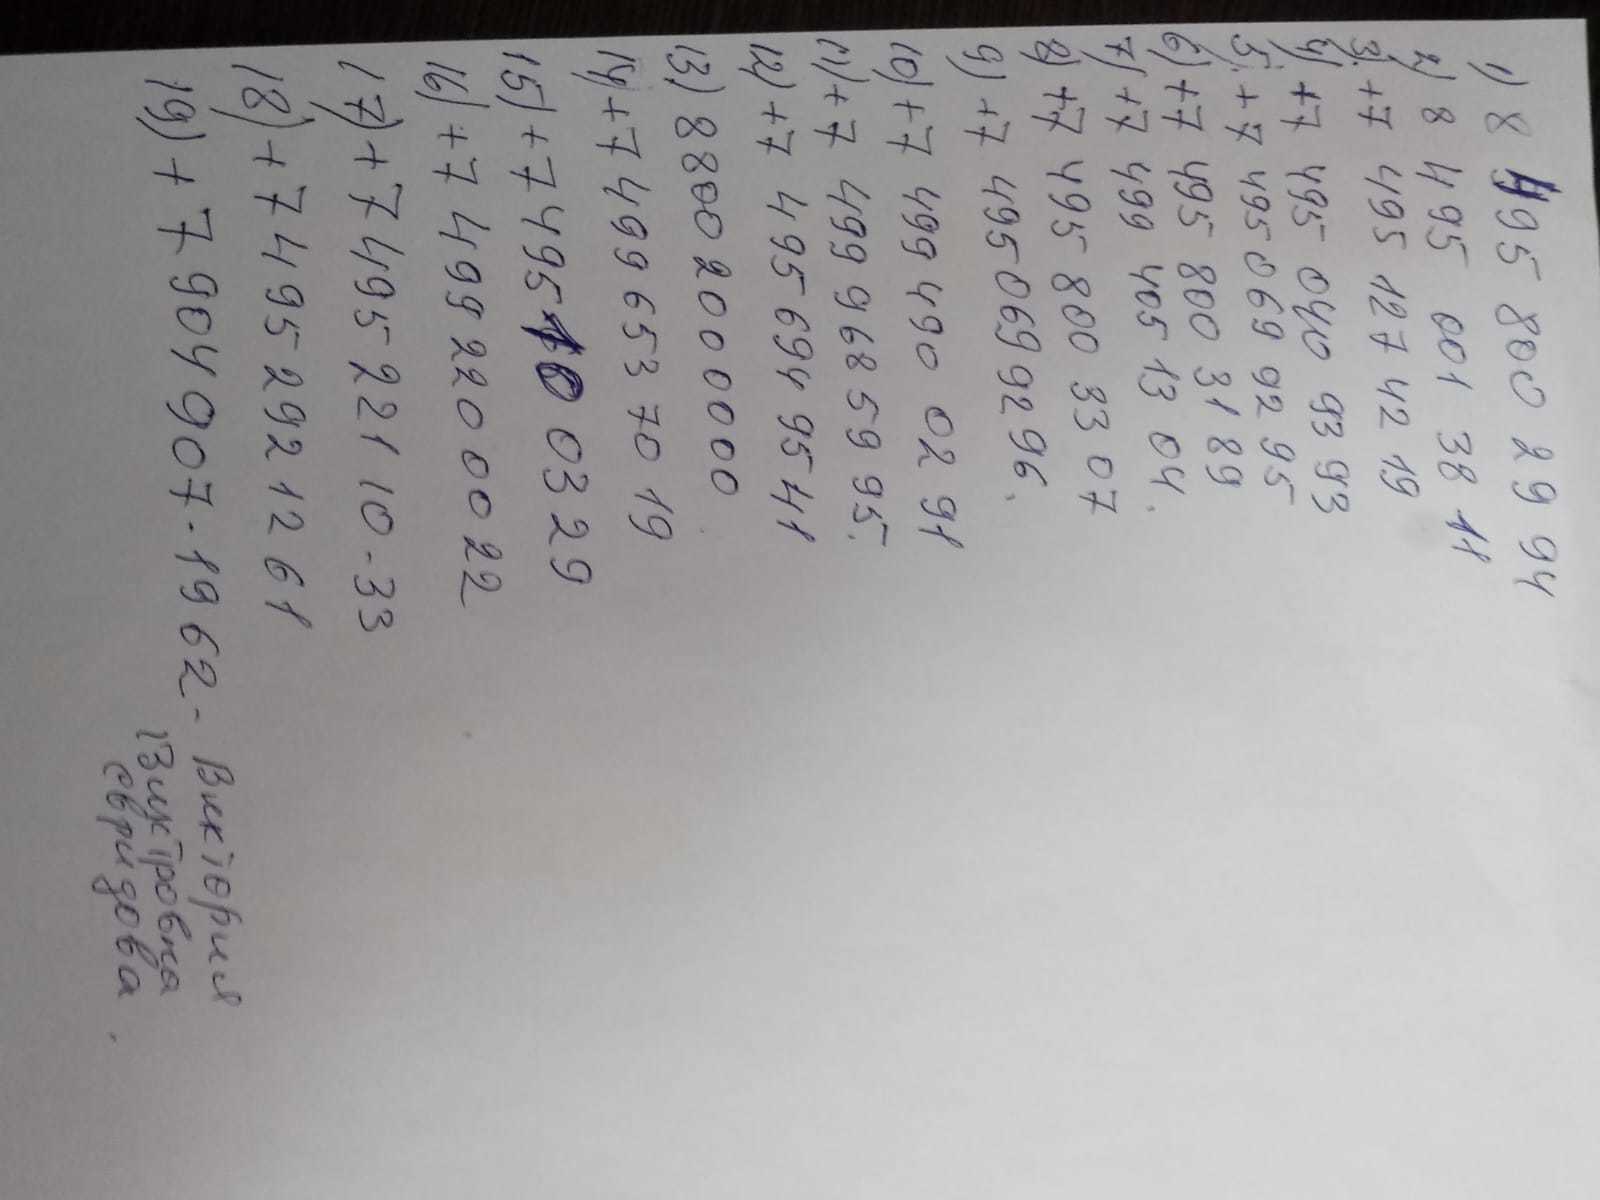 1) 8 495 800 29 94
2) 8 495 001 38 11
3) +7 495 127 42 19
4) +7 495 040 93 93
5. +7 495 069 92 95
6) +7 495 800 31 89
7) +7 499 405 13 04.
8) +7 495 800 33 07
9) +7 495 069 92 96.
10) +7 499 490 02 91
11) +7 499 968 59 95.
12) +7 495 694 95 41
13) 8 800 200 00 00
14) +7 499 653 70 19
15) +7 495 10 03 29
16) +7 499 220 00 22
17) +7 495 221 10-33
18) +7 495 292 12 61
19) +7 904 907-1962- Виктория
свридова.